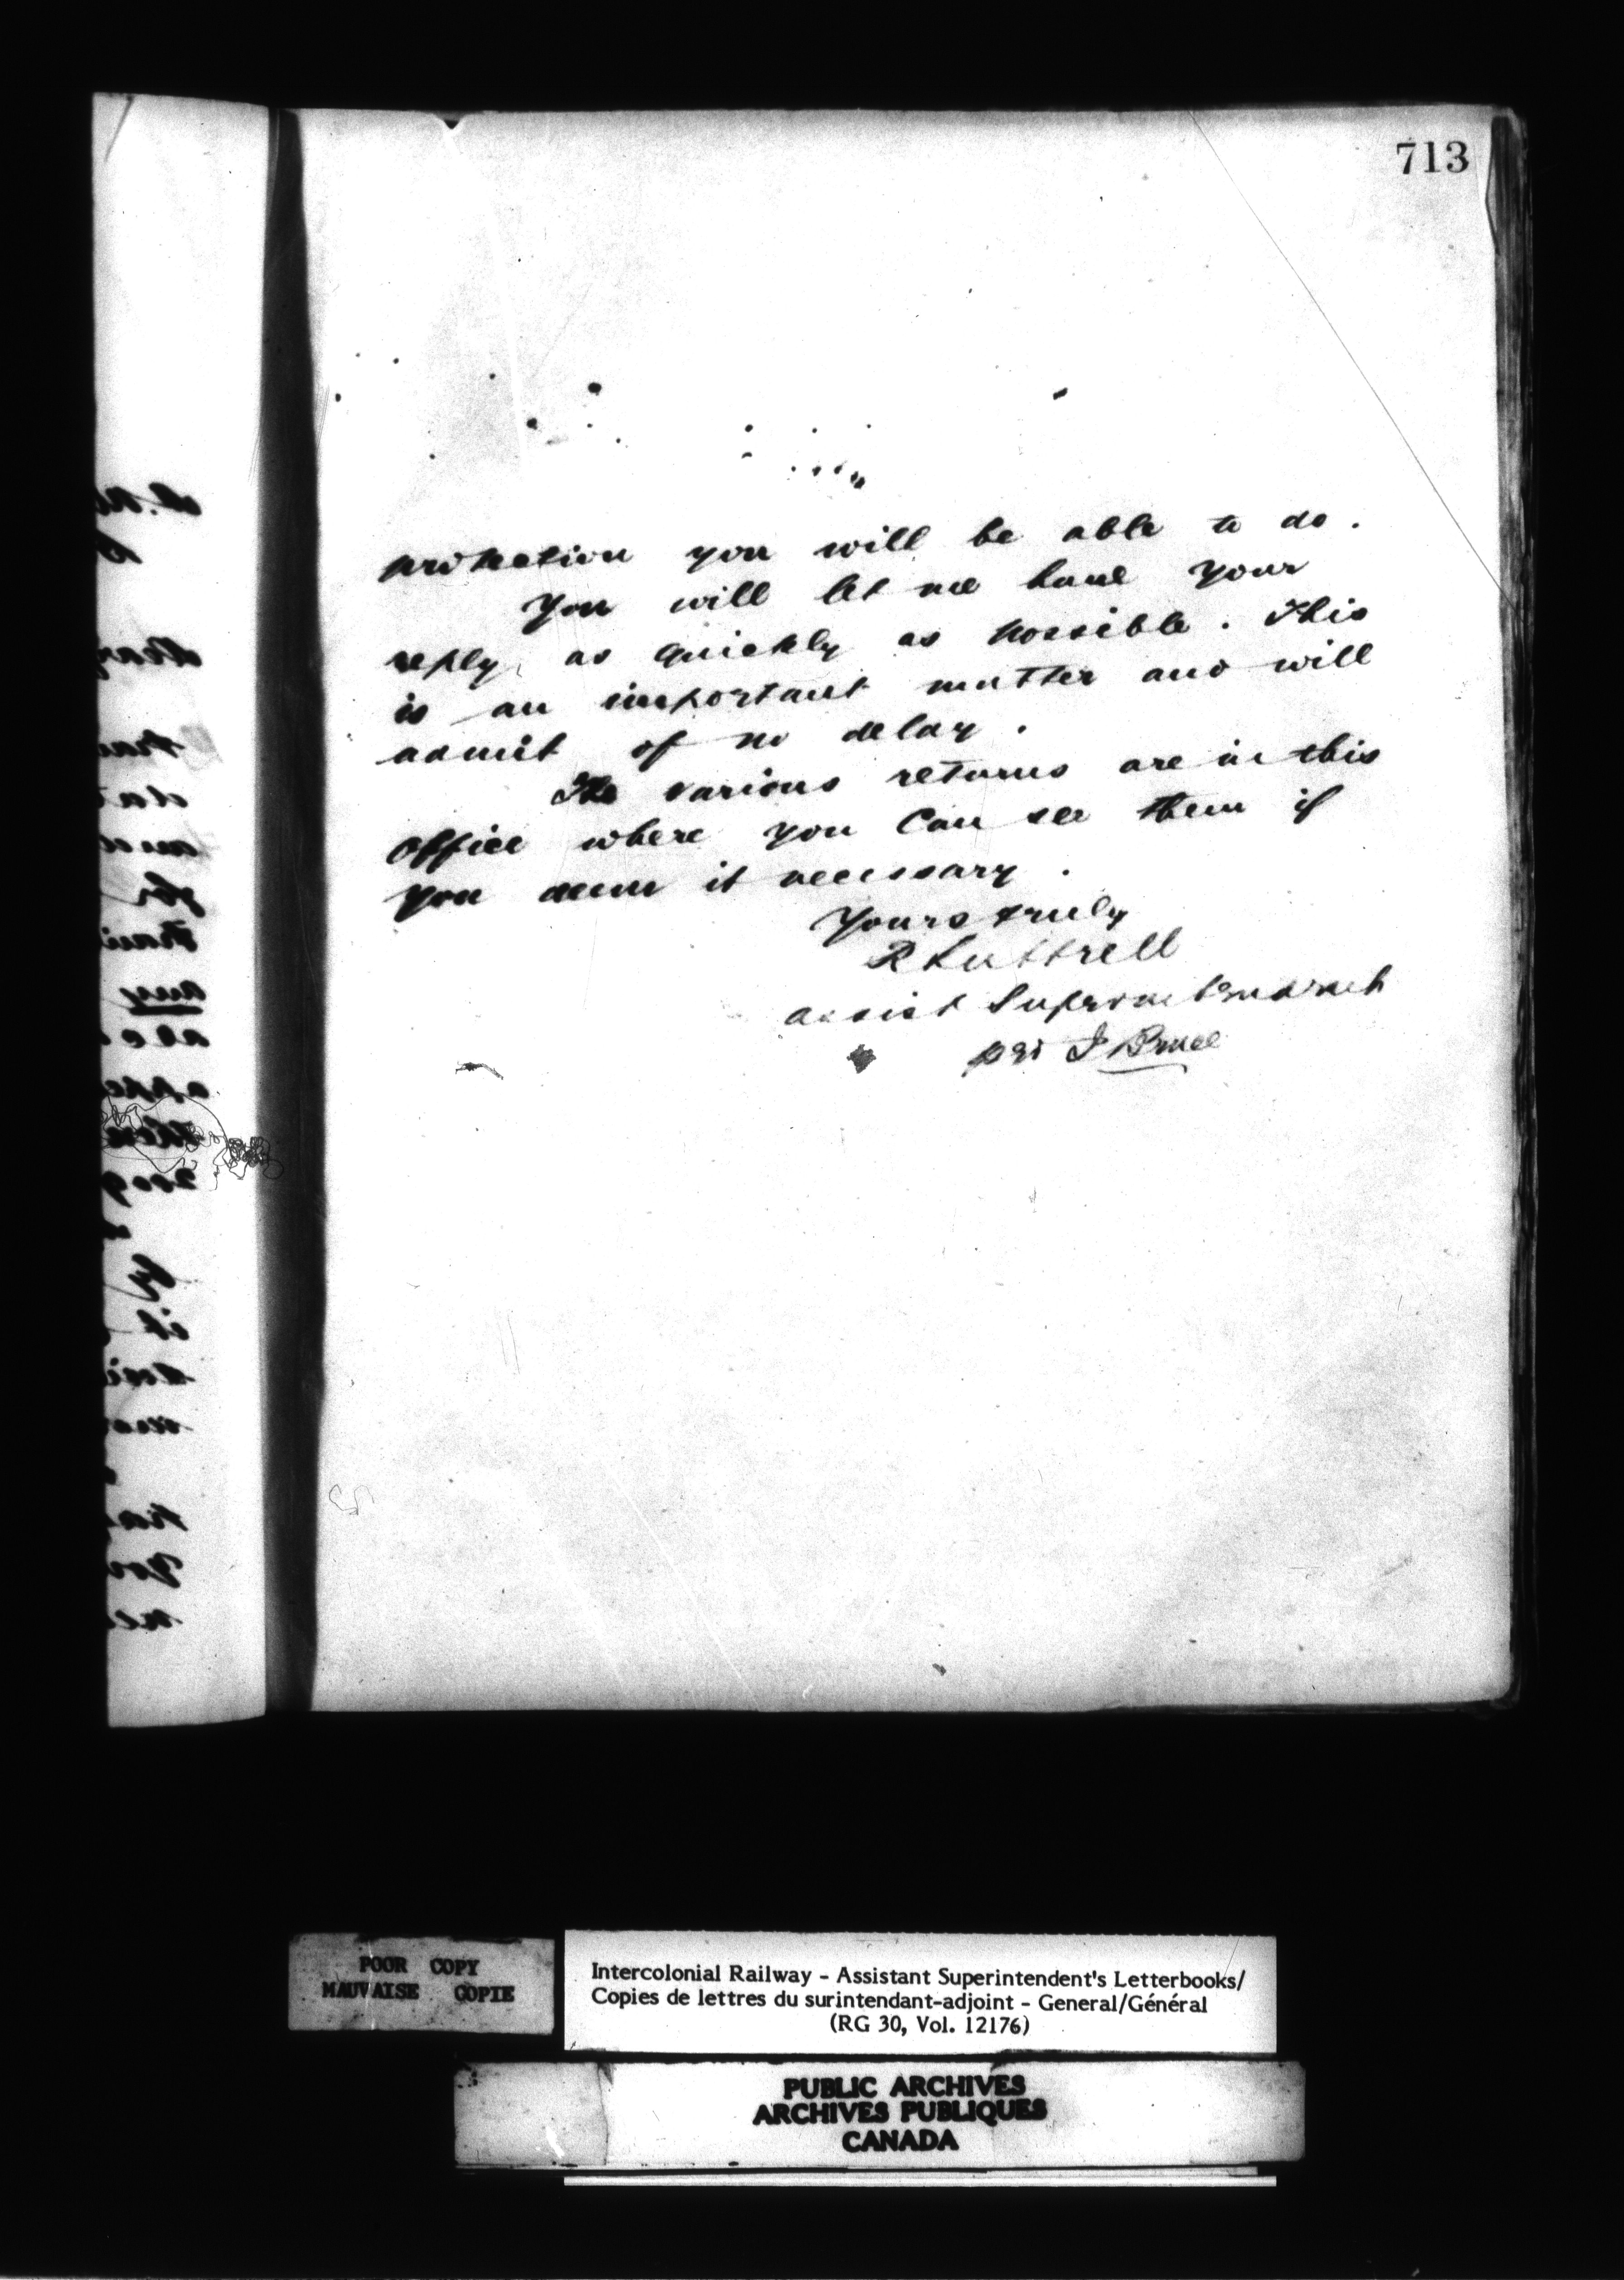 713
protection you will be able to do.
You will let me have your
reply, as quickly as possible. This
is an important matter and will
admit of no delay.
The various returns are in this
Office where you can see them if
you deem it necessary.
Yours truly
R Luttrell
Assist Superintendent
per J Bruce
POOR COPY
MAUVAISE COPIE
Intercolonial Railway - Assistant Superintendent's Letterbooks/
Copies de lettres du surintendant-adjoint - General/Général
(RG 30, Vol. 12176)
PUBLIC ARCHIVES
ARCHIVES PUBLIQUES
CANADA